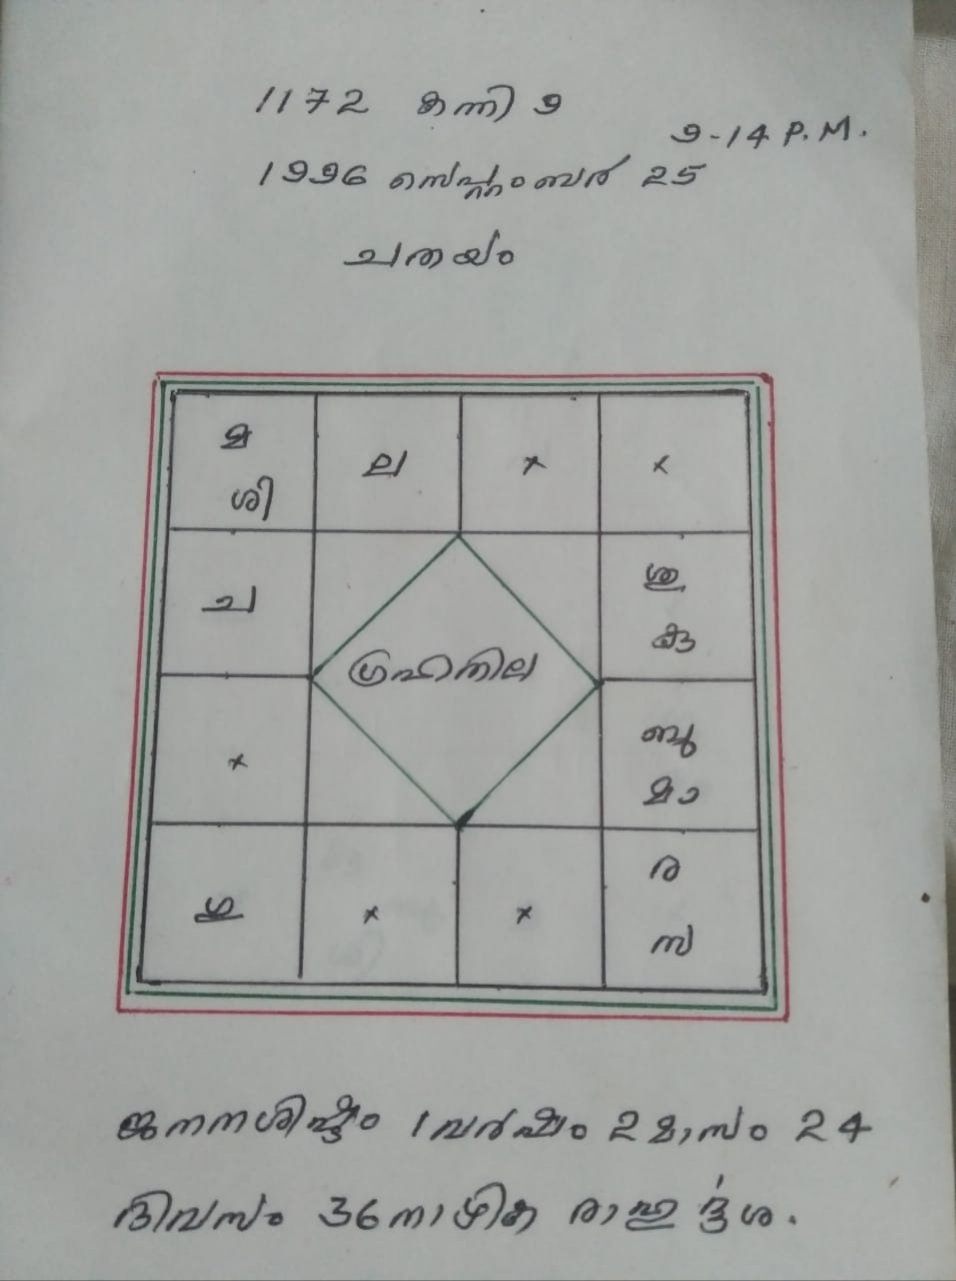 1172 കന്നി 9
9-14 P.M.
1996 സെപ്റ്റംബർ 25
ചതയം
മ ല x x
ശി
ച ശു
കു
ഗ്രഹനില
x ബു
മാ
ഗു x x ര
സ
ജനനശിഷ്ടം 1 വർഷം 2 മാസം 24
ദിവസം 36 നാഴിക രാഹുർദ്ദശ.